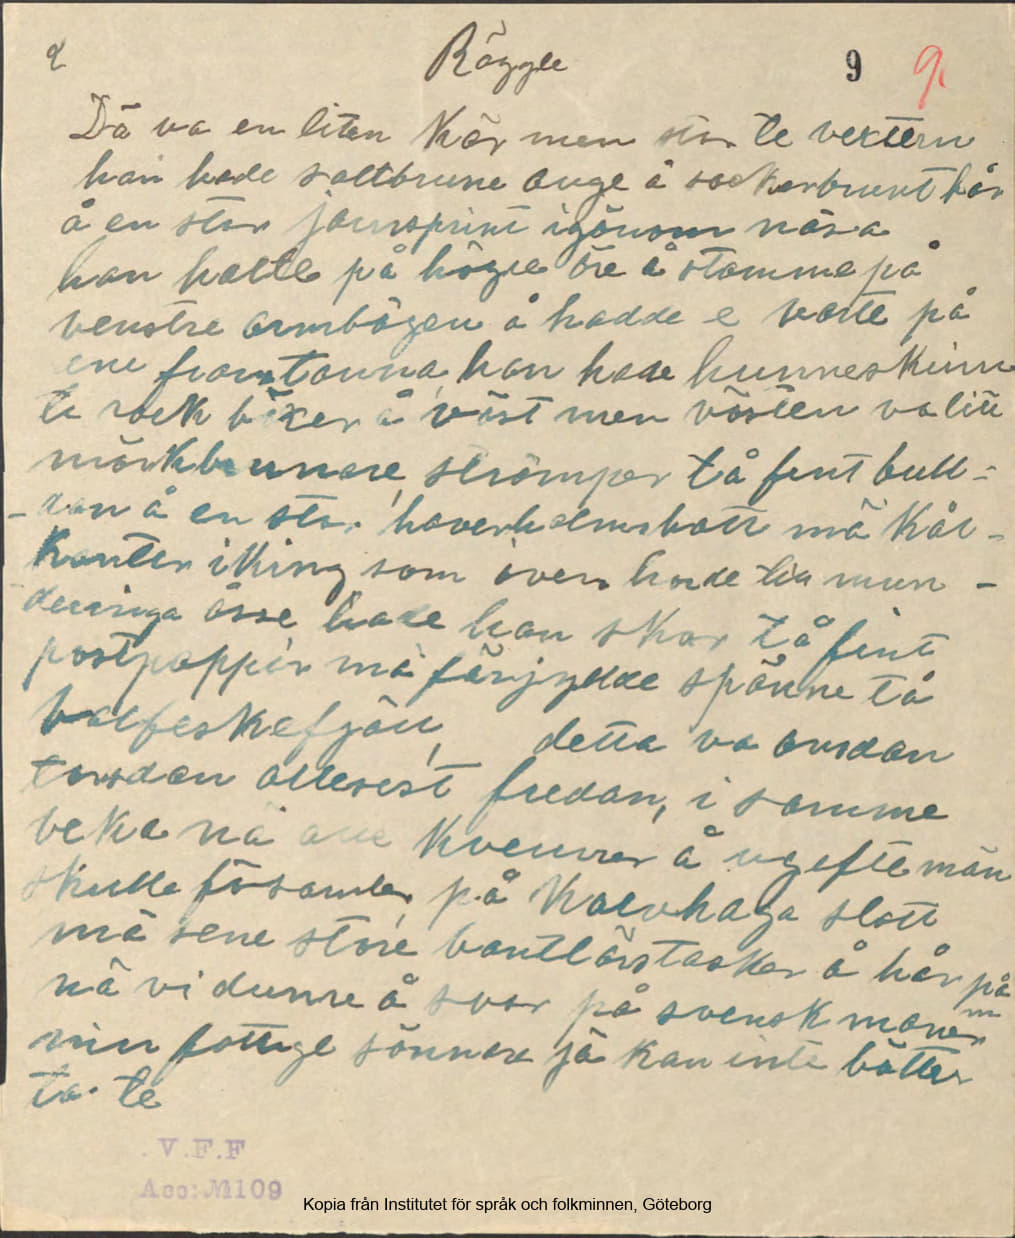 2 Räggle 9 9
Dä va en liten Kär men stor te vextern
han hade saltbrune auge å sockerbrunt hår
å en stor jernsprint igönom näsa
han halte på högre öre å stamme på
venstre armbögen å hadde e vorte på
ene framtanna, han hade hunneskinn
te rock böxer å väst men västen va litt
mörkbrunare, strömper tå fint bull-
-dan å en stor haverhalmshatt mä Kål-
Kanter iKring som även hörde till mun-
-deringa össe hade han skor tå fint
postpapper mä förjyllde spänne tå
valfeskefjäll, detta va onsdan
torsdan allerest fredan, i samme
veKa nä alle Kvenner å ugifte män
skulle församles på Kalvhaga slott
mä sene store vantlärstasker å hår på
nä vi dunre å svor på svensk maner
min fattige sönnare jä kan inte bätter
ta te
V.F.F
Acc: M109
Kopia från Institutet för språk och folkminnen, Göteborg